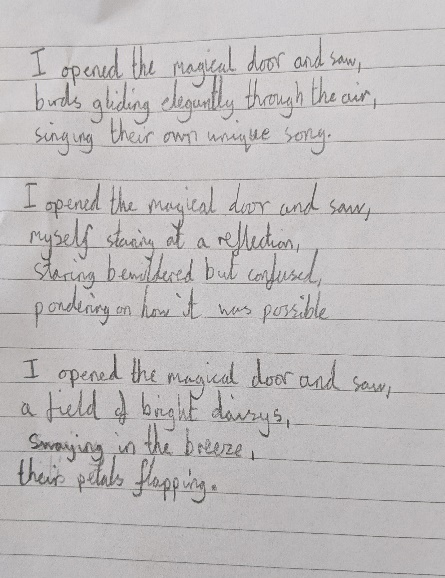 I opened the magical door and saw,
birds gliding elegantly through the air,
singing their own unique song.
I opened the magical door and saw,
myself staring at a reflection,
staring bewildered but confused,
pondering on how it was possible
I opened the magical door and saw,
a field of bright daisys,
swaying in the breeze,
their petals flapping.